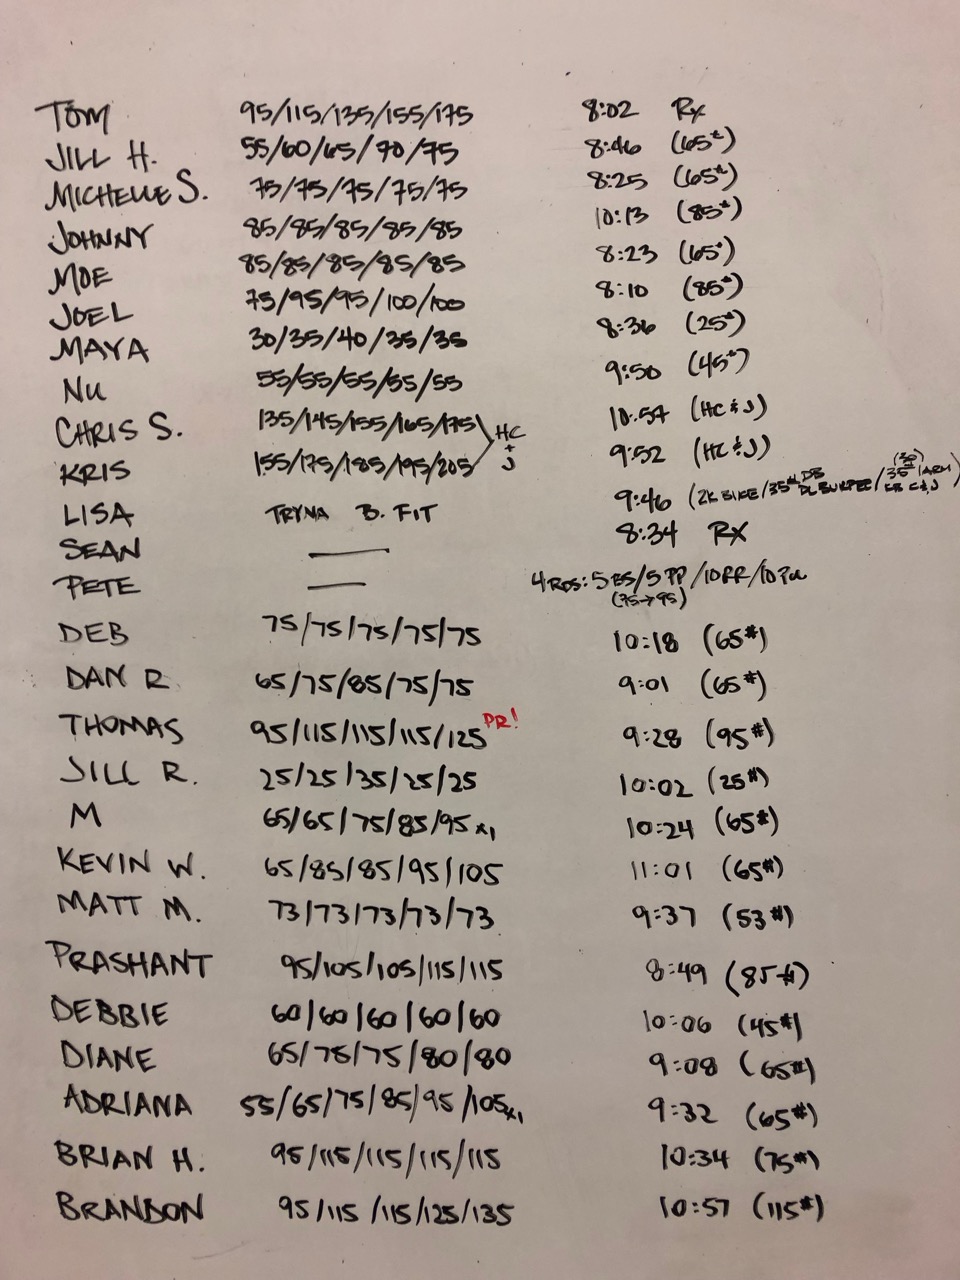 TOM 95/115/135/155/175 8:02 Rx
JILL H. 55/60/65/70/75 8:46 (65#)
MICHELLE S. 75/75/75/75/75 8:25 (65#)
JOHNNY 85/85/85/85/85 10:13 (85#)
MOE 85/85/85/85/85 8:23 (65#)
JOEL 75/95/95/100/100 8:10 (85#)
MAYA 30/35/40/35/35 8:36 (25#)
NU 55/55/55/55/55 9:50 (45#)
CHRIS S. 135/145/155/165/175 10:54 (HC & J)
KRIS 155/175/185/195/205 HC + J 9:52 (HC & J)
LISA TRYNA B. FIT 9:46 (2K BIKE/35# DB DL BURPEE/35# (30) 1 ARM KB C&J)
SEAN — 8:34 RX
PETE — 4 RDS: 5 BS/5 PP/10 RR/10 PU
(75→95)
DEB 75/75/75/75/75 10:18 (65#)
DAN R. 65/75/85/75/75 9:01 (65#)
THOMAS 95/115/115/115/125 PR! 9:28 (95#)
JILL R. 25/25/35/25/25 10:02 (25#)
M 65/65/75/85/95 x1 10:24 (65#)
KEVIN W. 65/85/85/95/105 11:01 (65#)
MATT M. 73/73/73/73/73 9:37 (53#)
PRASHANT 95/105/105/115/115 8:49 (85#)
DEBBIE 60/60/60/60/60 10:06 (45#)
DIANE 65/75/75/80/80 9:08 (65#)
ADRIANA 55/65/75/85/95/105 x1 9:32 (65#)
BRIAN H. 95/115/115/115/115 10:34 (75#)
BRANDON 95/115/115/125/135 10:57 (115#)